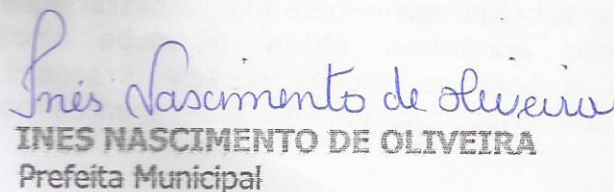 Inês Nascimento de Oliveira
INES NASCIMENTO DE OLIVEIRA
Prefeita Municipal